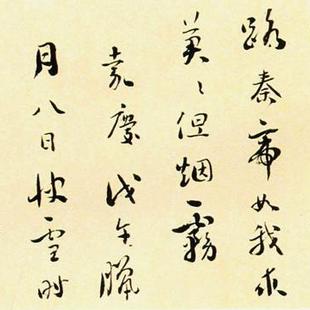 路秦帝如我求
蒼〻但烟霧
嘉慶戊午臘
月八日快雪時